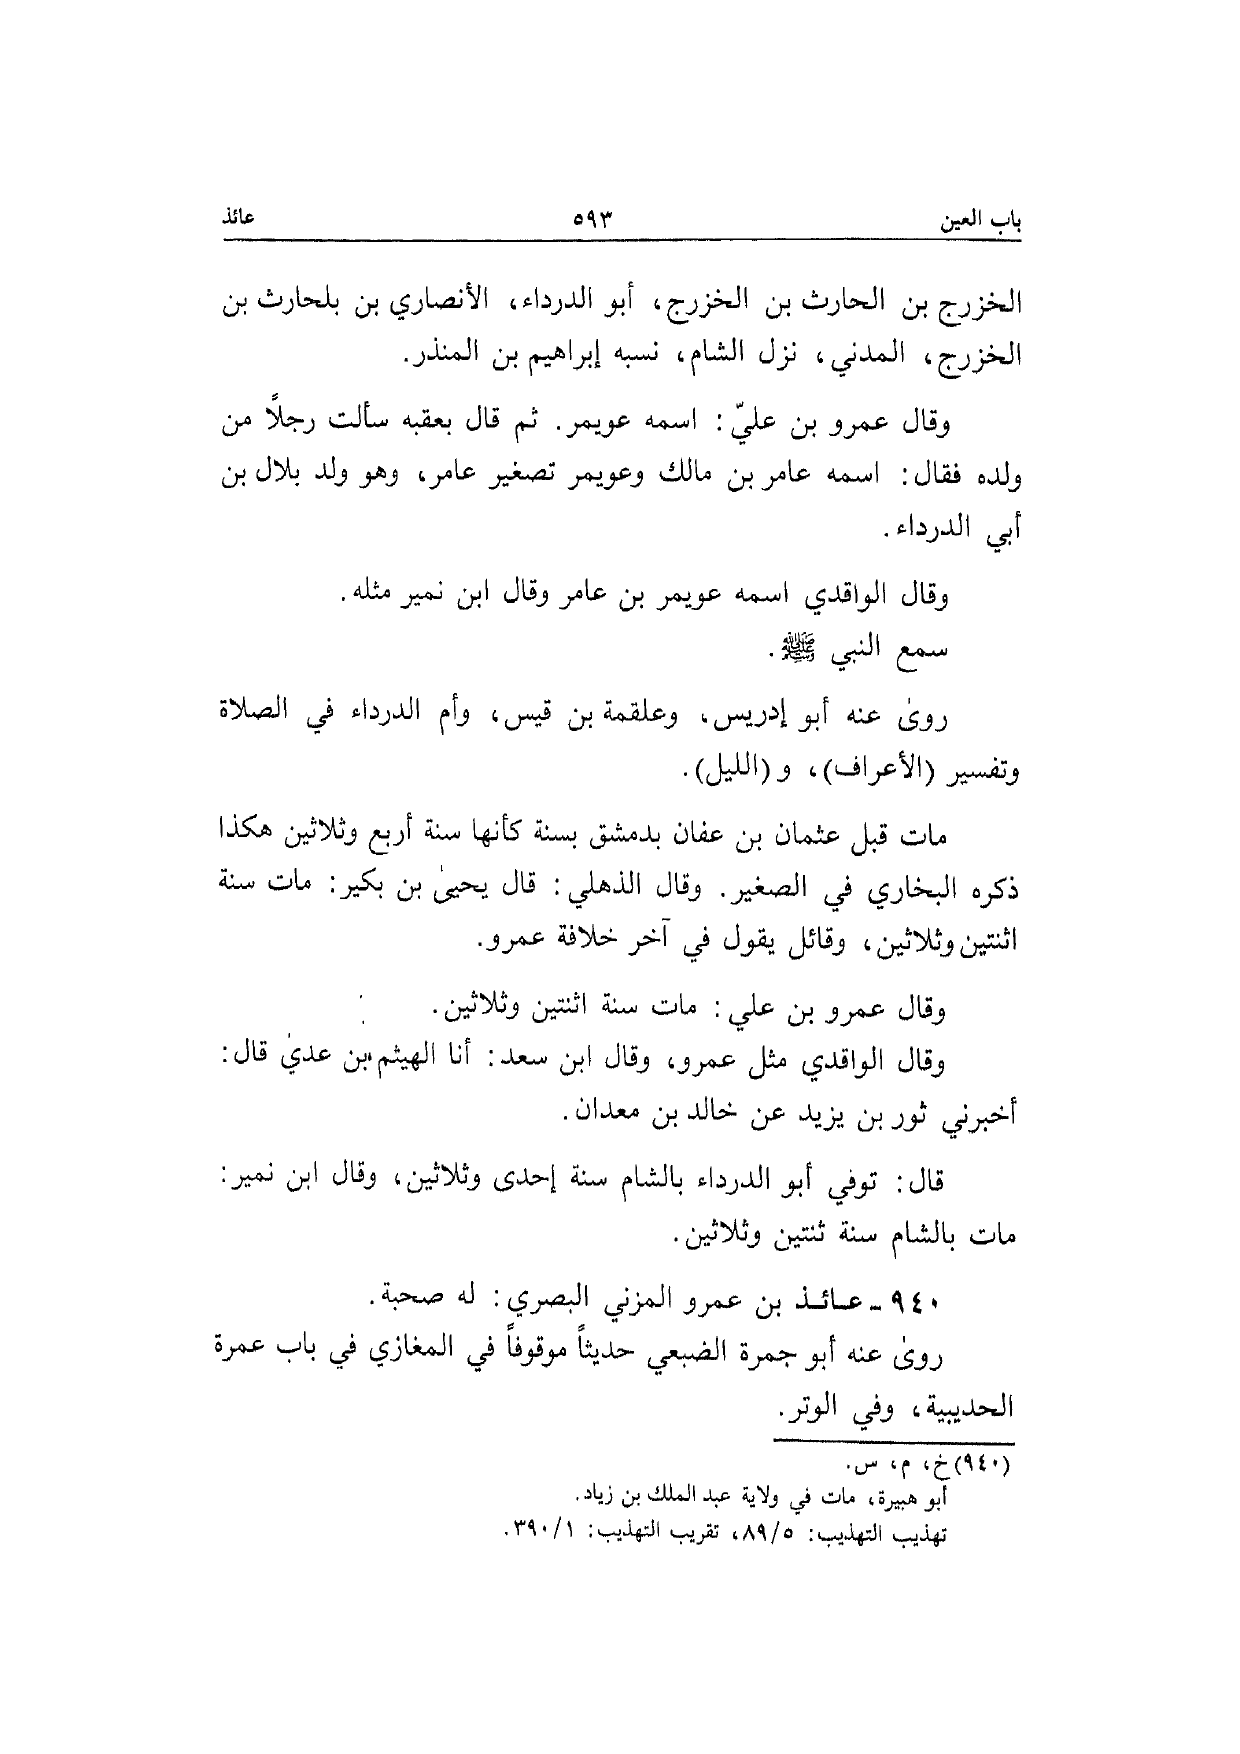 باب العين ٥٩٣ عائذ
الخزرج بن الحارث بن الخزرج، أبو الدرداء، الأنصاري بن بلحارث بن
الخزرج، المدني، نزل الشام، نسبه إبراهيم بن المنذر.
وقال عمرو بن عليّ: اسمه عويمر. ثم قال بعقبه سألت رجلاً من
ولده فقال: اسمه عامر بن مالك وعويمر تصغير عامر، وهو ولد بلال بن
أبي الدرداء.
وقال الواقدي اسمه عويمر بن عامر وقال ابن نمير مثله.
سمع النبي ﷺ.
روىٰ عنه أبو إدريس، وعلقمة بن قيس، وأم الدرداء في الصلاة
وتفسير (الأعراف)، و (الليل).
مات قبل عثمان بن عفان بدمشق بسنة كأنها سنة أربع وثلاثين هكذا
ذكره البخاري في الصغير. وقال الذهلي: قال يحيىٰ بن بكير: مات سنة
اثنتين وثلاثين، وقائل يقول في آخر خلافة عمرو.
وقال عمرو بن علي: مات سنة اثنتين وثلاثين.
وقال الواقدي مثل عمرو، وقال ابن سعد: أنا الهيثم بن عدىٰ قال:
أخبرني ثور بن يزيد عن خالد بن معدان.
قال: توفي أبو الدرداء بالشام سنة إحدى وثلاثين، وقال ابن نمير:
مات بالشام سنة ثنتين وثلاثين.
٩٤٠ ـ عائذ بن عمرو المزني البصري: له صحبة.
روىٰ عنه أبو جمرة الضبعي حديثاً موقوفاً في المغازي في باب عمرة
الحديبية، وفي الوتر.
(٩٤٠) خ، م، س.
أبو هبيرة، مات في ولاية عبد الملك بن زياد.
تهذيب التهذيب: ٨٩/٥، تقريب التهذيب: ٣٩٠/١.